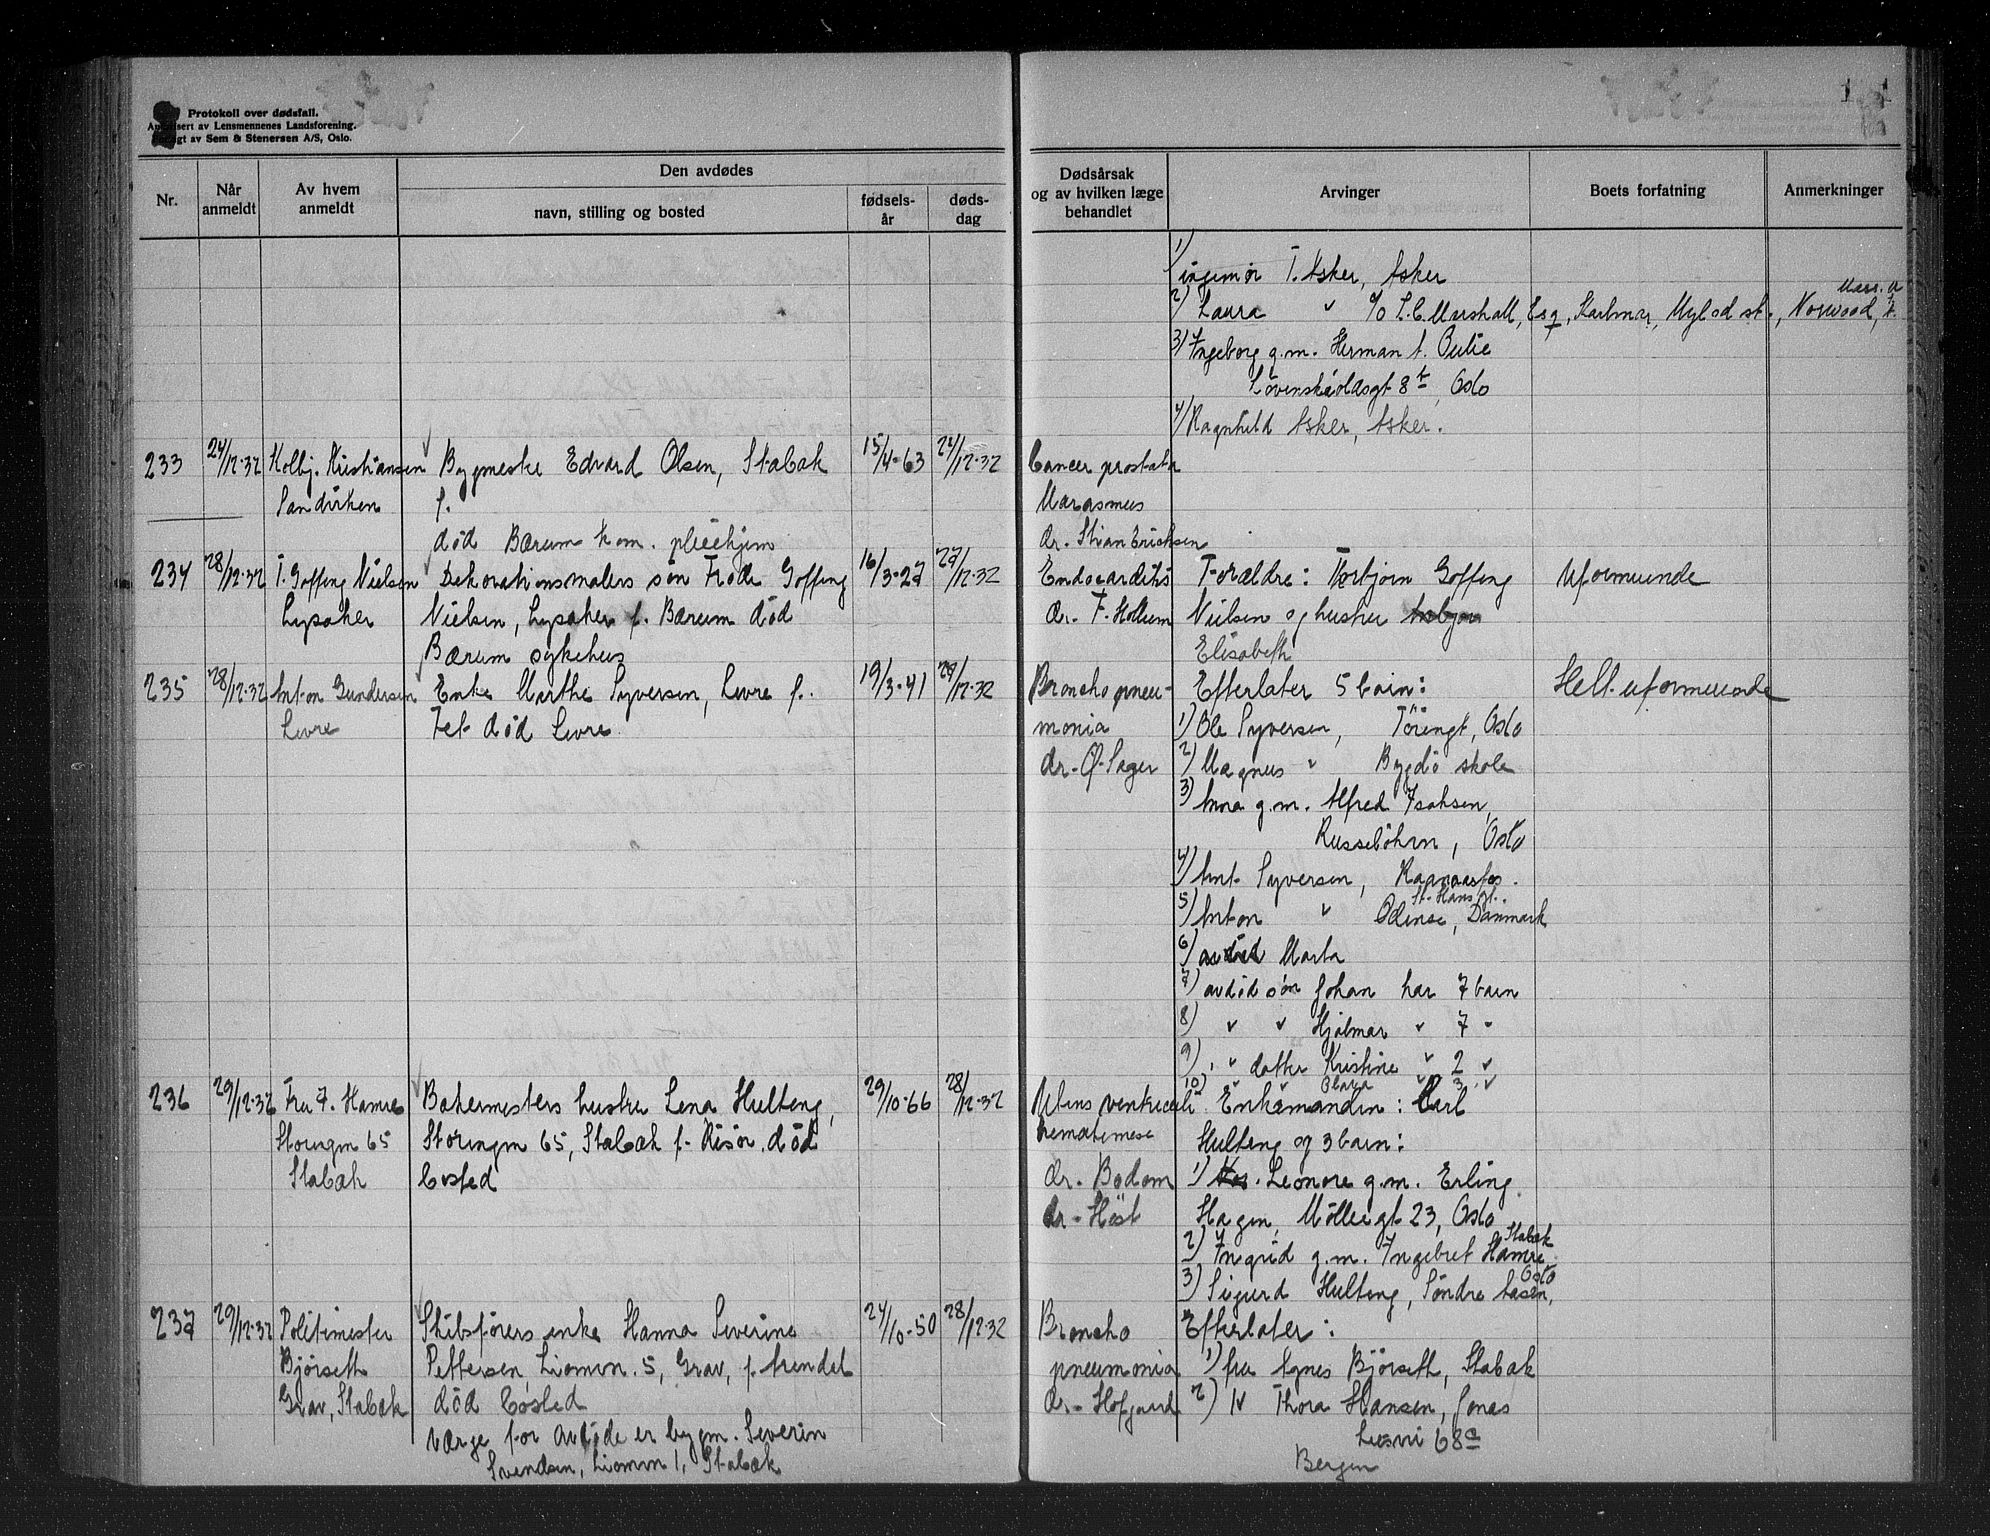 Protokoll over dødsfall.
Autorisert av Lensmennenes Landsforening.
av Sem & Stenersen A/S, Oslo.
Nr.
Når anmeldt
Av hvem anmeldt
Den avdødes
navn, stilling og bosted
fødsels-år
døds-dag
Dødsårsak og av hvilken læge behandlet
Arvinger
Boets forfatning
Anmerkninger
1)
ingeniør T. Asker, Asker
2) Laura " c/o L.C. Marshall, Esq, Norwood, Mass.
3) Ingeborg g.m. Herman f.
Løvenskioldsgt 8, Oslo
4) Ragnhild Asker, Asker.
233 24/12-32 Kolbj. Kristiansen Bygmester Edvard Olsen, Stabæk 15/4-63 24/12-32 Cancer prostata
Sandviken f. Marasmus
død Bærum kom. pleiehjem dr. Stian Erichsen
234 28/12-32 T. Goffeng Nielsen Dekorationsmalers søn Frode Goffeng 16/3-27 27/12-32 Endocarditis Forældre: Thorbjørn Goffeng Uformuende
Lysaker Nielsen, Lysaker f. Bærum død dr. F. Nielsen og hustru
Bærum sykehus Elisabeth
235 28/12-32 Anton Gundersen Enke Marthe Syversen, Levre f. 19/3-41 /12-32 Broncho pneu- Efterlater 5 barn: Helt uformuende
Levre Fet død Levre monia 1) Ole Syversen, Oslo
dr. Ø. Sager 2) Magnus " Bygdø skole
3) Anna g.m. Alfred Isaksen,
Oslo
4) Ant. Syversen,
St. Hans gt.
5) Anton " Odense, Danmark
6) avdød Marta
7) avdød søn Johan har 7 barn
8) " " Hjalmar " 7 "
9) " datter Kristine " 2 "
10) " " Olava " 3 "
236 29/12-32 Fru I. Hamre Bakermesters hustru Lena Hulteng, 29/10-66 28/12-32 Ulcus ventriculi Enkemanden: Carl
Storengen 65 Storengen 65, Stabæk f. Risør død hematemese Hulteng og 3 barn:
Stabæk bosted dr. Bodom 1) Leonore g.m. Erling
dr. Høst Hagen, Møllergt 23, Oslo
2) Ingrid g.m. Ingebret Hamre Stabæk
3) Sigurd Hulteng, Søndre Aasen, Oslo
237 29/12-32 Politimester Skibsførers enke Hanna Severine 24/10-50 28/12-32 Broncho Efterlater:
Bjørseth Pettersen, Liomvn. 5, Grav, f. Arendal pneumonia 1) fru Agnes Bjørseth, Stabæk
Grav, Stabæk død bosted dr. Hofgaard 2) " Thora Hansen, Jonas
Værge for avdøde er bygm. Severin Liesvei 68a
Svendsen, Liomvn 1, Stabæk Bergen